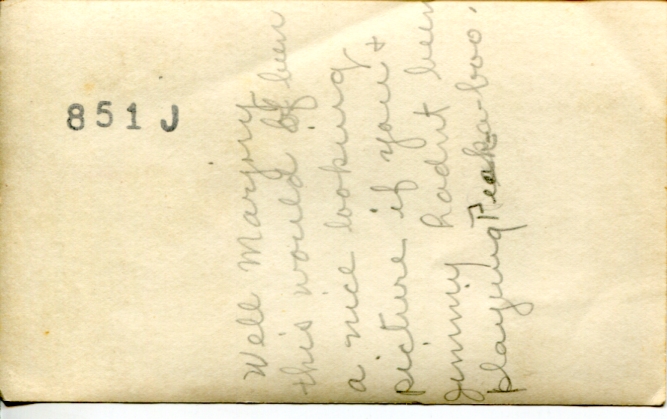 851J
Well Marjory
this would of been
a nice looking
picture if you +
Jimmy hadnt been
playing Peek-a-boo.